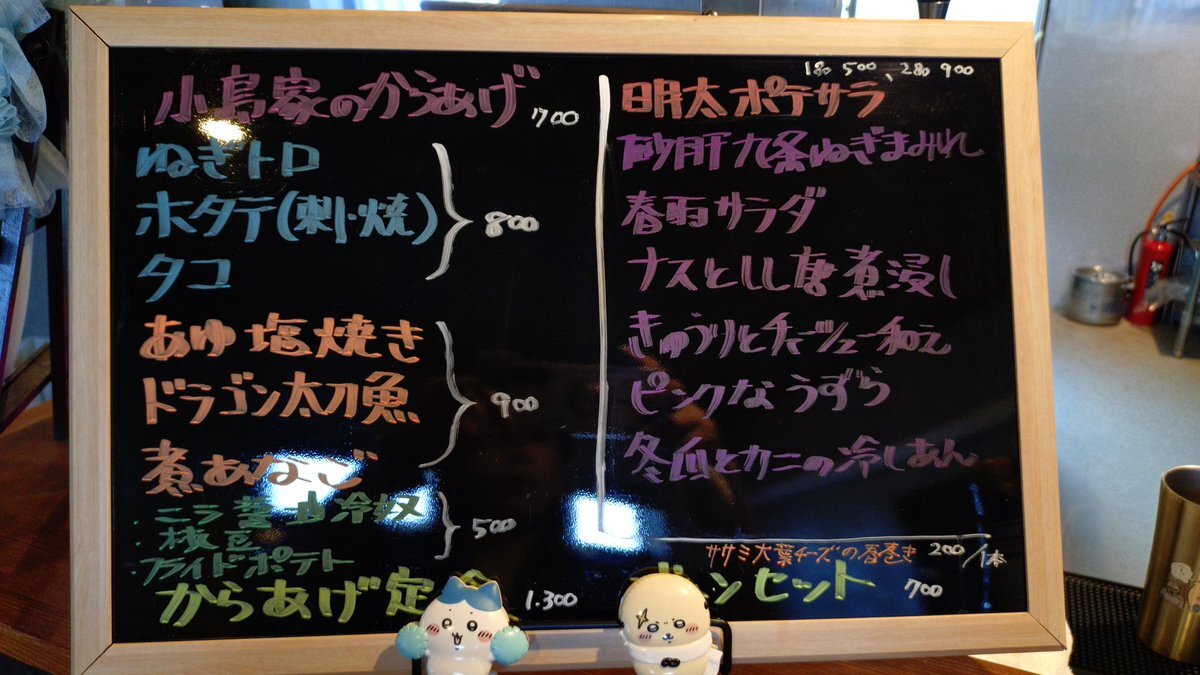 小島家のからあげ 700
ねぎトロ
ホタテ(刺・焼)
タコ
800
あゆ塩焼き
ドラゴン太刀魚
煮あなご
900
・ニラ醤油冷奴
・枝豆
・フライドポテト
500
からあげ定 1.300
1品 500、2品 900
明太ポテサラ
砂肝九条ねぎまみれ
春雨サラダ
ナスとしし唐煮浸し
きゅうりとチャーシュー和え
ピンクなうずら
冬瓜とカニの冷しあん
ササミ大葉チーズの春巻き 200/1本
ンセット 700